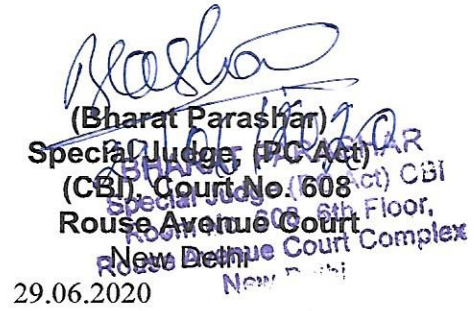 (Bharat Parashar)
Special Judge, (PC Act)
(CBI), Court No. 608
Rouse Avenue Court
New Delhi
29.06.2020
BHARAT PARASHAR
Special Judge (PC Act) CBI
Room No. 608, 6th Floor,
Rouse Avenue Court Complex
New Delhi